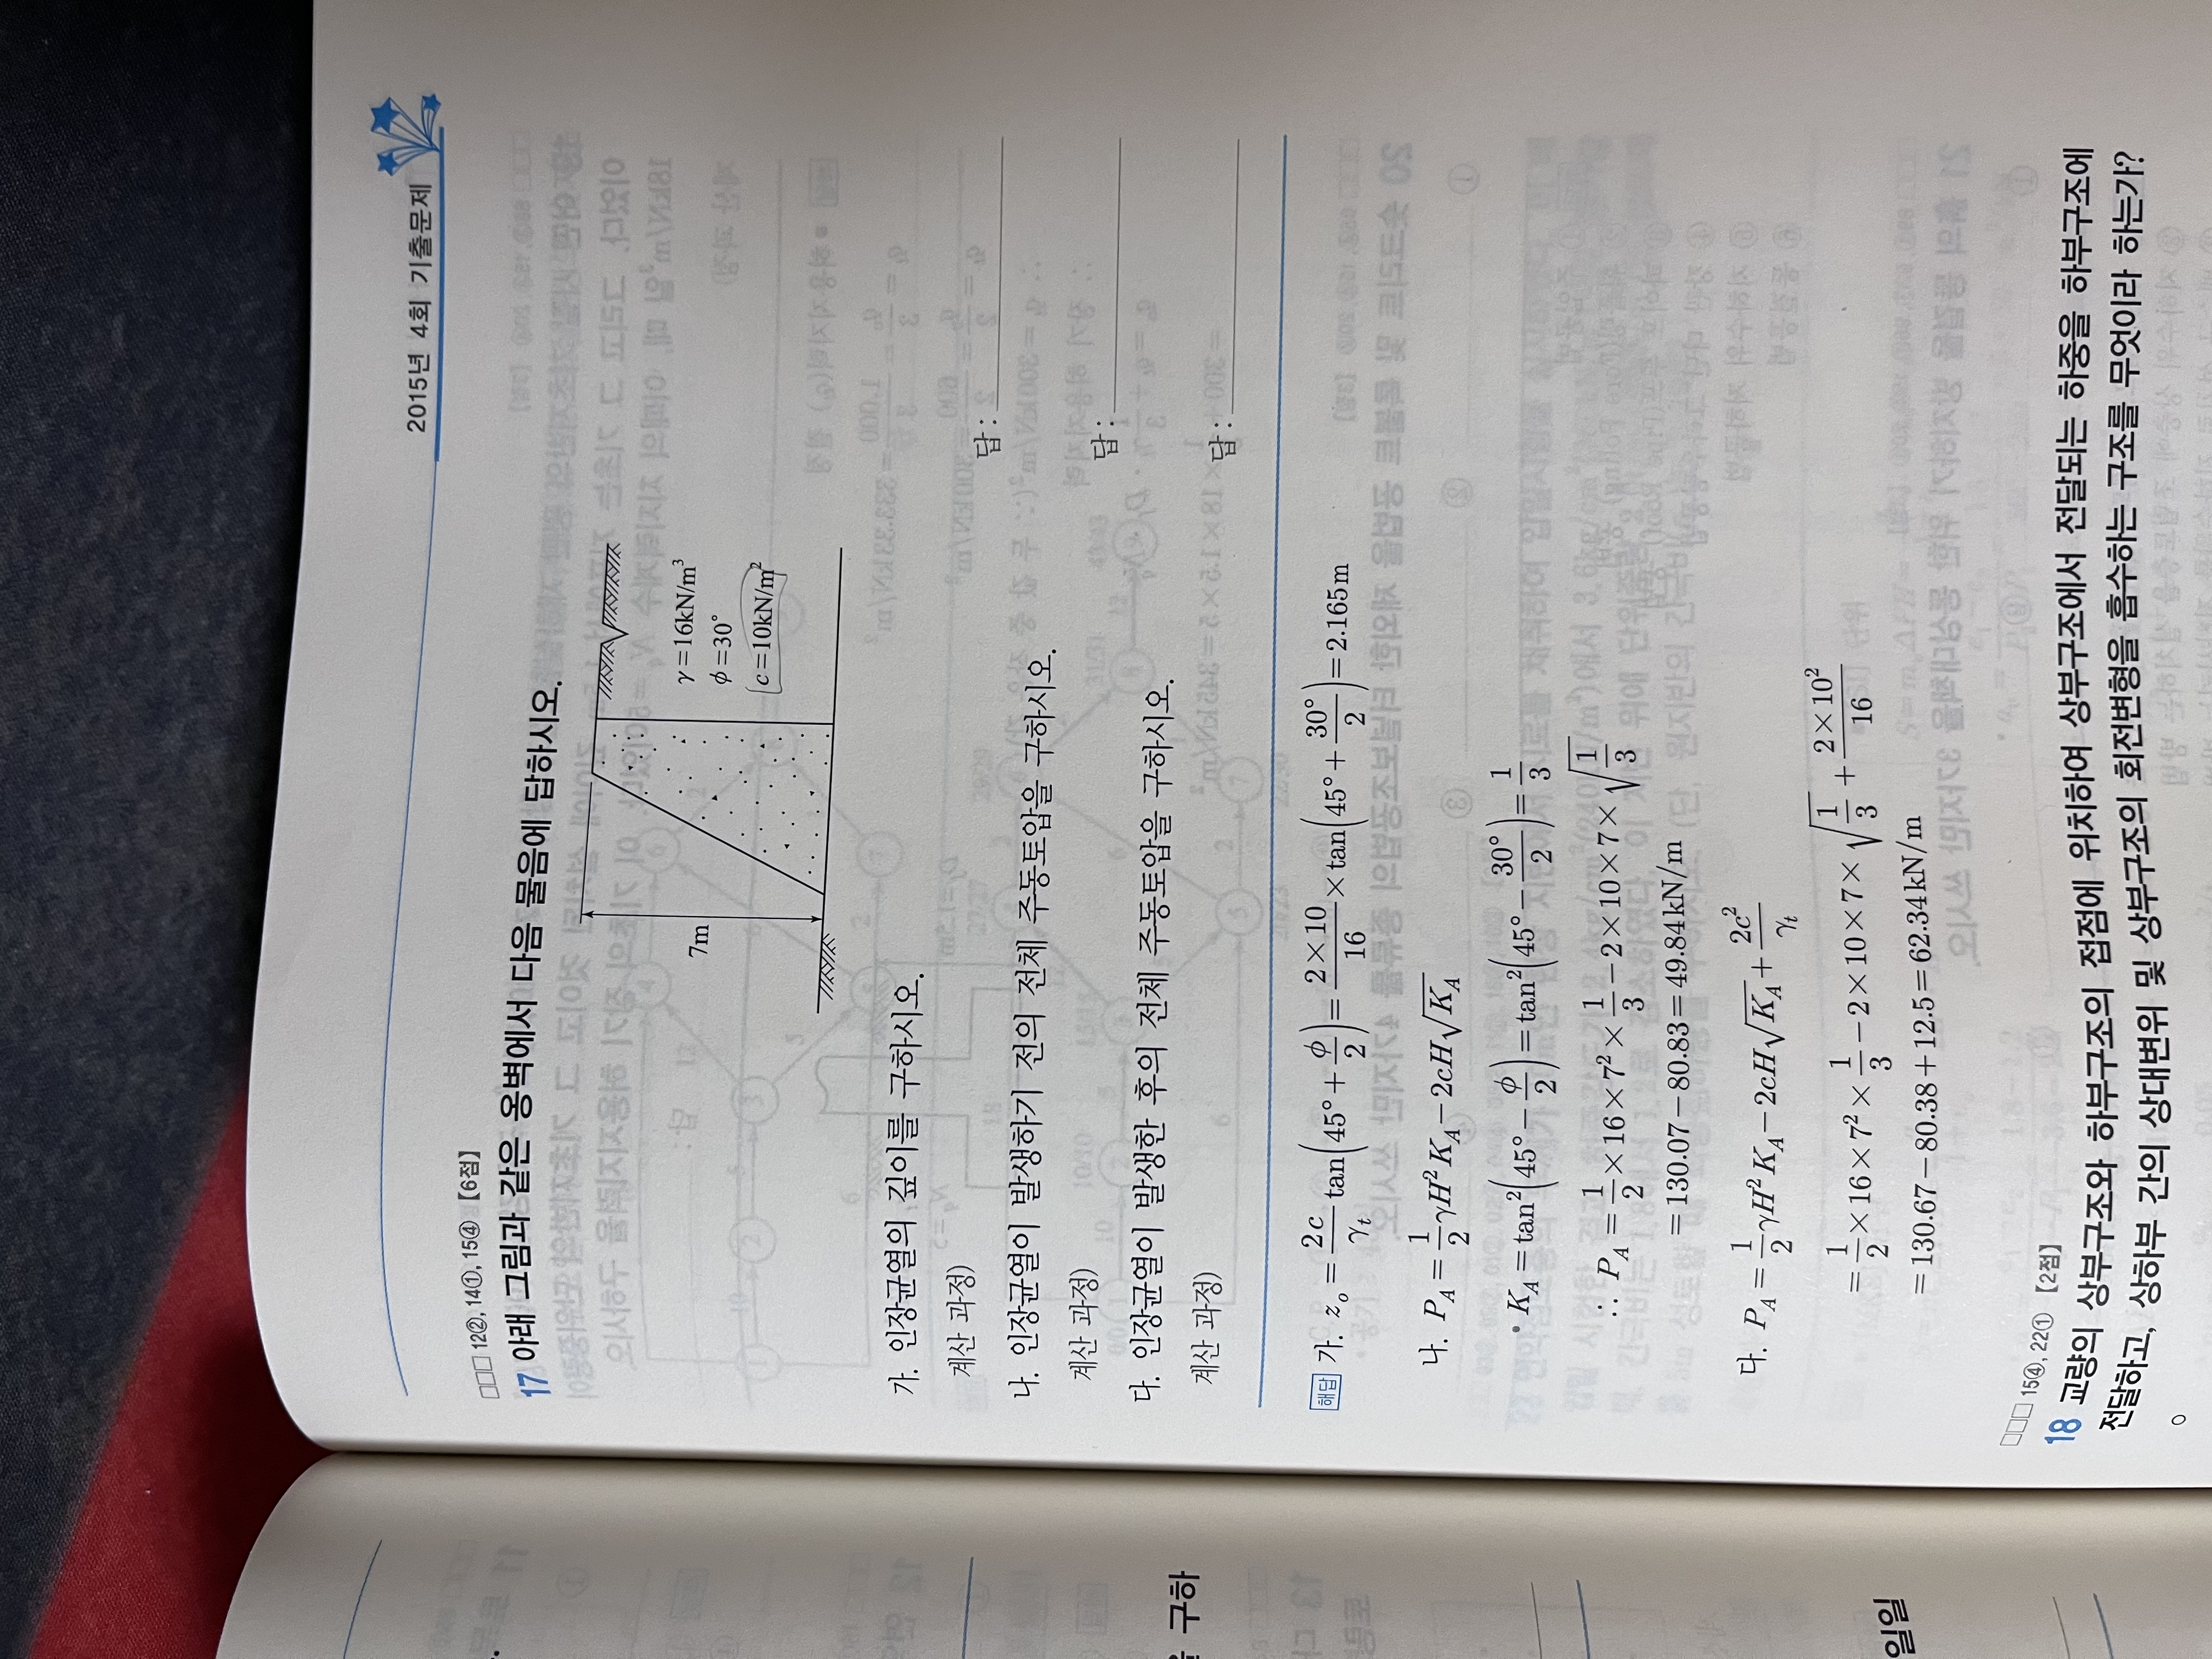 2015년 4회 기출문제
□□□ 12②, 14①, 15④ 【6점】
17 아래 그림과 같은 옹벽에서 다음 물음에 답하시오.
7m
γ=16kN/m³
φ=30°
c=10kN/m²
가. 인장균열의 깊이를 구하시오.
계산 과정)
답 :
나. 인장균열이 발생하기 전의 전체 주동토압을 구하시오.
계산 과정)
답 :
다. 인장균열이 발생한 후의 전체 주동토압을 구하시오.
계산 과정)
답 :
해답 가. z_o = 2c/γ_t tan(45° + φ/2) = 2×10/16 × tan(45° + 30°/2) = 2.165m
나. P_A = 1/2 γH² K_A − 2cH√K_A
• K_A = tan²(45° − φ/2) = tan²(45° − 30°/2) = 1/3
∴ P_A = 1/2 × 16 × 7² × 1/3 − 2 × 10 × 7 × √(1/3)
= 130.07 − 80.83 = 49.84kN/m
다. P_A = 1/2 γH² K_A − 2cH√K_A + 2c²/γ_t
= 1/2 × 16 × 7² × 1/3 − 2 × 10 × 7 × √(1/3) + 2×10²/16
= 130.67 − 80.38 + 12.5 = 62.34kN/m
□□□ 15④, 22① 【2점】
18 교량의 상부구조와 하부구조의 접점에 위치하여 상부구조에서 전달되는 하중을 하부구조에
전달하고, 상하부 간의 상대변위 및 상부구조의 회전변형을 흡수하는 구조를 무엇이라 하는가?
○
구하
일일